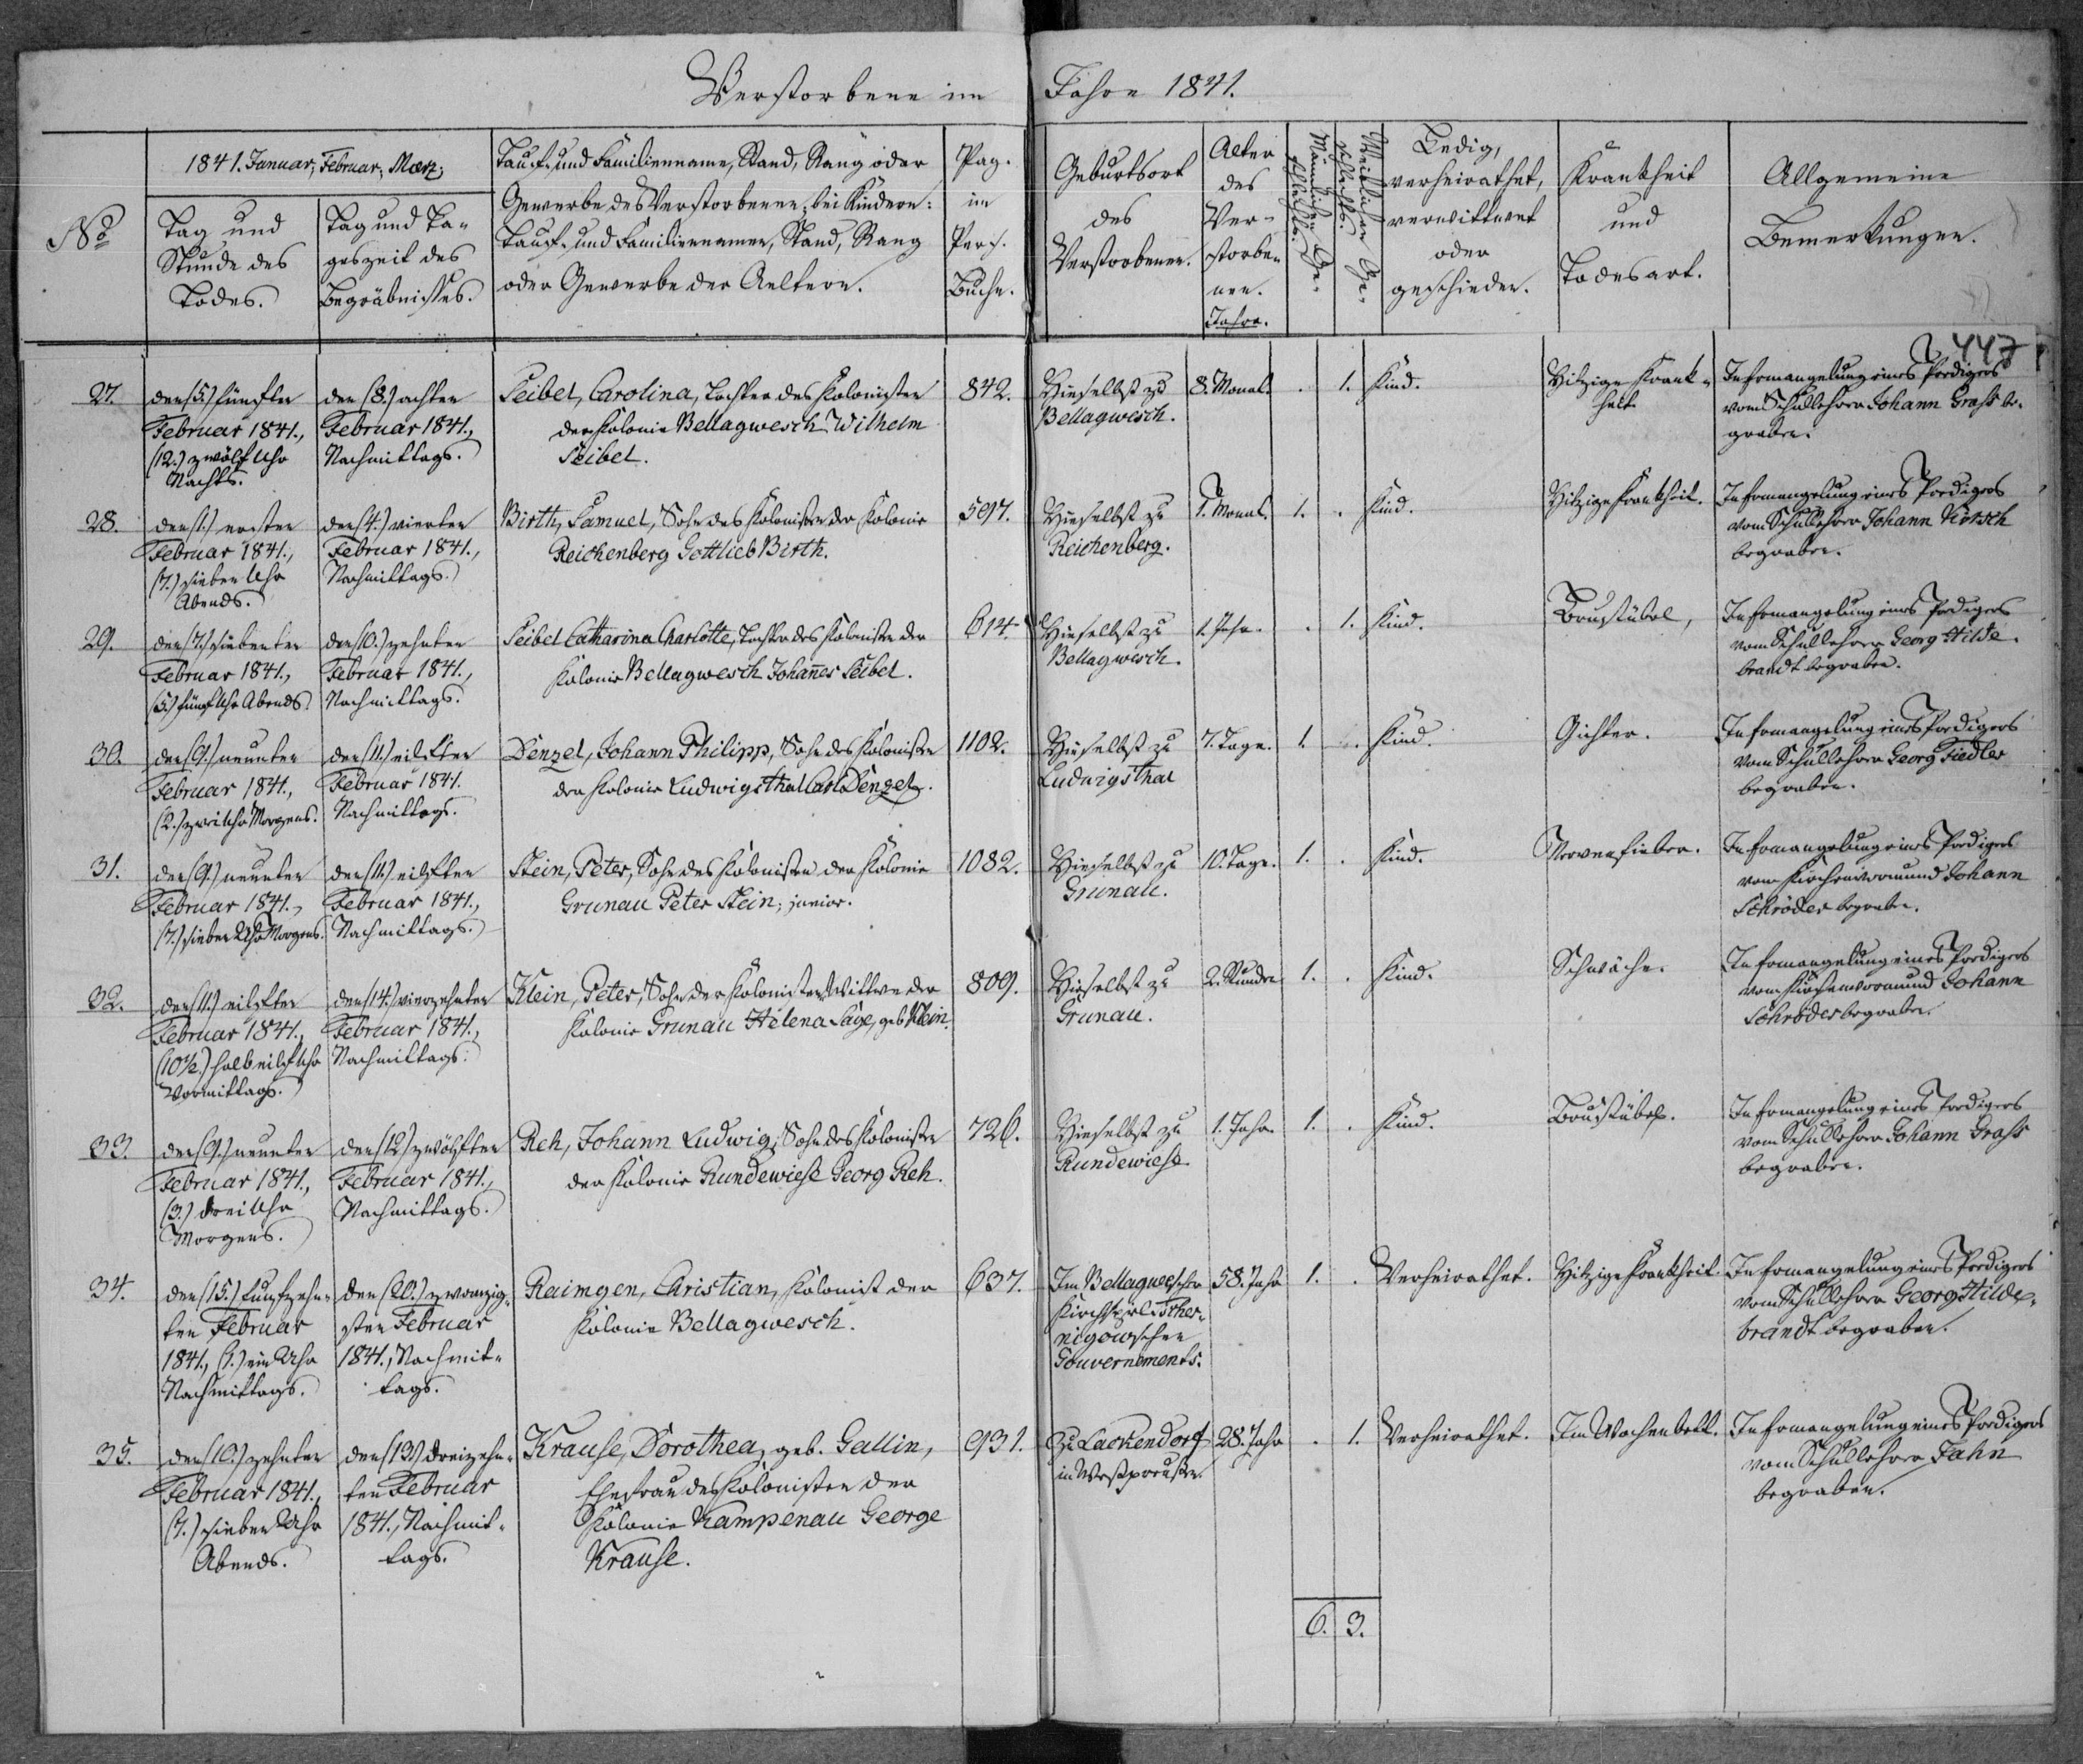 Verstorbene im Jahre 1841.
447
No
1841. Januar, Februar, Maerz.
Tag und
Stunde des
Todes.
Tag und Ta-
geszeit des
Begräbnisses.
Tauf- und Familienname, Stand, Rang oder
Gewerbe des Verstorbenen; bei Kindern:
Tauf- und Familiennamen, Stand, Rang
oder Gewerbe der Aeltern.
Pag.
im
Pers.
Buche.
Geburtsort
des
Verstorbenen.
Alter
des
Ver-
storbe-
nen.
Jahre.
Männlichen Ge-
schlechts.
Weiblichen Ge-
schlechts.
Ledig,
verheirathet,
verwittwet
oder
geschieden.
Krankheit
und
Todesart.
Allgemeine
Bemerkungen.
27.
den (5.) fünften
Februar 1841.,
(12.) zwölf Uhr
Nachts.
den (8.) achten
Februar 1841.,
Nachmittags.
Seibel, Carolina, Tochter des Kolonisten
der Kolonie Bellagwesch Wilhelm
Seibel.
842.
Hieselbst zu
Bellagwesch.
8. Monat.
. 1.
Kind.
Hitzige Krank-
heit.
In Ermangelung eines Predigers
vom Schullehrer Johann Grass be-
graben.
28.
den (1.) ersten
Februar 1841.,
(7.) sieben Uhr
Abends.
den (4.) vierten
Februar 1841.,
Nachmittags.
Birth, Samuel, Sohn des Kolonisten der Kolonie
Reichenberg Gottlieb Birth.
597.
Hieselbst zu
Reichenberg.
1. Monat.
1. .
Kind.
Hitzige Krankheit.
In Ermangelung eines Predigers
vom Schullehrer Johann
begraben.
29.
den (7.) siebenten
Februar 1841.,
(5.) fünf Uhr Abends.
den (10.) zehnten
Februar 1841.,
Nachmittags.
Seibel Catharina Charlotte, Tochter des Kolonisten der
Kolonie Bellagwesch Johannes Seibel.
614.
Hieselbst zu
Bellagwesch.
1. Jahr.
. 1.
Kind.
Brustübel,
In Ermangelung eines Predigers
vom Schullehrer Georg Hilde-
brandt begraben.
30.
den (9.) neunten
Februar 1841.,
(2.) zwei Uhr Morgens.
den (11.) eilften
Februar 1841.
Nachmittags.
Denzel, Johann Philipp, Sohn des Kolonisten
der Kolonie Ludwigsthal Carl Denzel.
1102.
Hieselbst zu
Ludwigsthal
7. Tage.
1. .
Kind.
Gichter.
In Ermangelung eines Predigers
vom Schullehrer Georg Fiedler
begraben.
31.
den (9.) neunten
Februar 1841.,
(7.) sieben Uhr Morgens.
den (11.) eilften
Februar 1841.,
Nachmittags.
Stein, Peter, Sohn des Kolonisten der Kolonie
Grunau Peter Stein, junior.
1082.
Hieselbst zu
Grunau.
10. Tage.
1. .
Kind.
Nervenfieber.
In Ermangelung eines Predigers
vom Kirchenvormund Johann
Schröder begraben.
32.
den (11.) eilften
Februar 1841.,
(10½.) halb eilf Uhr
Vormittags.
den (14.) vierzehnten
Februar 1841.,
Nachmittags.
Klein, Peter, Sohn der Kolonisten Wittwe der
Kolonie Grunau Helena Säge, geb. Klein.
809.
Hieselbst zu
Grunau.
2. Stunden
1. .
Kind.
Schwäche.
In Ermangelung eines Predigers
vom Kirchenvormund Johann
Schröder begraben.
33.
den (9.) neunten
Februar 1841.,
(3.) drei Uhr
Morgens.
den (12.) zwölften
Februar 1841.,
Nachmittags.
Reh, Johann Ludwig, Sohn des Kolonisten
der Kolonie Rundewiese Georg Reh.
726.
Hieselbst zu
Rundewiese
1. Jahr.
1. .
Kind.
Brustübel.
In Ermangelung eines Predigers
vom Schullehrer Johann Grass
begraben.
34.
den (15.) funfzehn-
ten Februar
1841., (1.) ein Uhr
Nachmittags.
den (20.) zwanzig-
sten Februar
1841., Nachmit-
tags.
Raimgen, Christian, Kolonist der
Kolonie Bellagwesch.
637.
Im Bellagwescher
Kirchspiel Tscher-
nigowschen
Gouvernements.
58. Jahr
1. .
Verheirathet.
Hitzige Krankheit.
In Ermangelung eines Predigers
vom Schullehrer Georg Hilde-
brandt begraben.
35.
den (10.) zehnten
Februar 1841.,
(7.) sieben Uhr
Abends.
den (13.) dreizehn-
ten Februar
1841., Nachmit-
tags.
Krause, Dorothea, geb. Gallin,
Ehefrau des Kolonisten der
Kolonie Kampenau George
Krause.
931.
Zu Lackendorf
in Westpreußen.
28. Jahr
. 1.
Verheirathet.
Im Wochenbett.
In Ermangelung eines Predigers
vom Schullehrer Jahn
begraben.
6. 3.